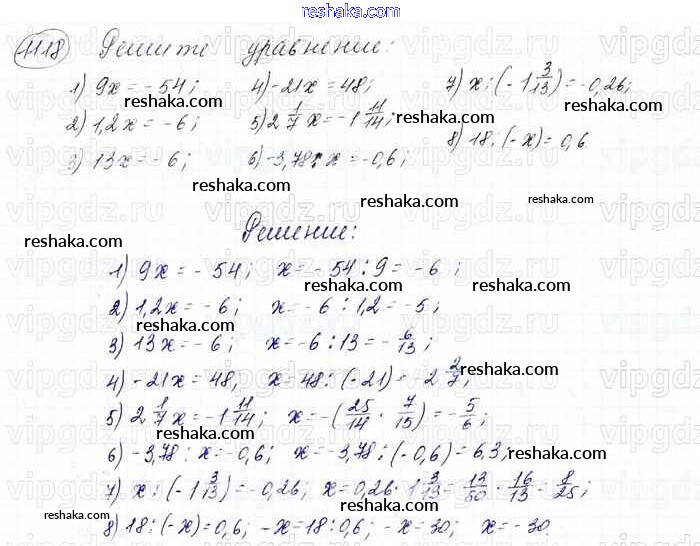 reshaka.com
1118 Решите уравнение:
1) 9x = -54; 4) -21x = 48; 7) x : (-1 3/13) = -0,26;
reshaka.com reshaka.com
2) 1,2x = -6; 5) 2 1/7 x = -1 11/14; reshaka.com
8) 18 : (-x) = 0,6.
3) 13x = -6; 6) -3,78 : x = -0,6;
reshaka.com reshaka.com
Решение:
reshaka.com reshaka.com
1) 9x = -54; x = -54 : 9 = -6;
reshaka.com
2) 1,2x = -6; x = -6 : 1,2 = -5;
reshaka.com
3) 13x = -6; x = -6 : 13 = -6/13;
reshaka.com
4) -21x = 48, x = 48 : (-21) = -2 2/7;
reshaka.com
5) 2 1/7 x = -1 11/14; x = -(25/14 · 7/15) = -5/6;
reshaka.com
6) -3,78 : x = -0,6; x = -3,78 : (-0,6) = 6,3;
reshaka.com
7) x : (-1 3/13) = -0,26; x = 0,26 · 1 3/13 = 13/50 · 16/13 = 8/25;
reshaka.com reshaka.com
8) 18 : (-x) = 0,6; -x = 18 : 0,6; -x = 30; x = -30.
reshaka.com
vipgdz.ru